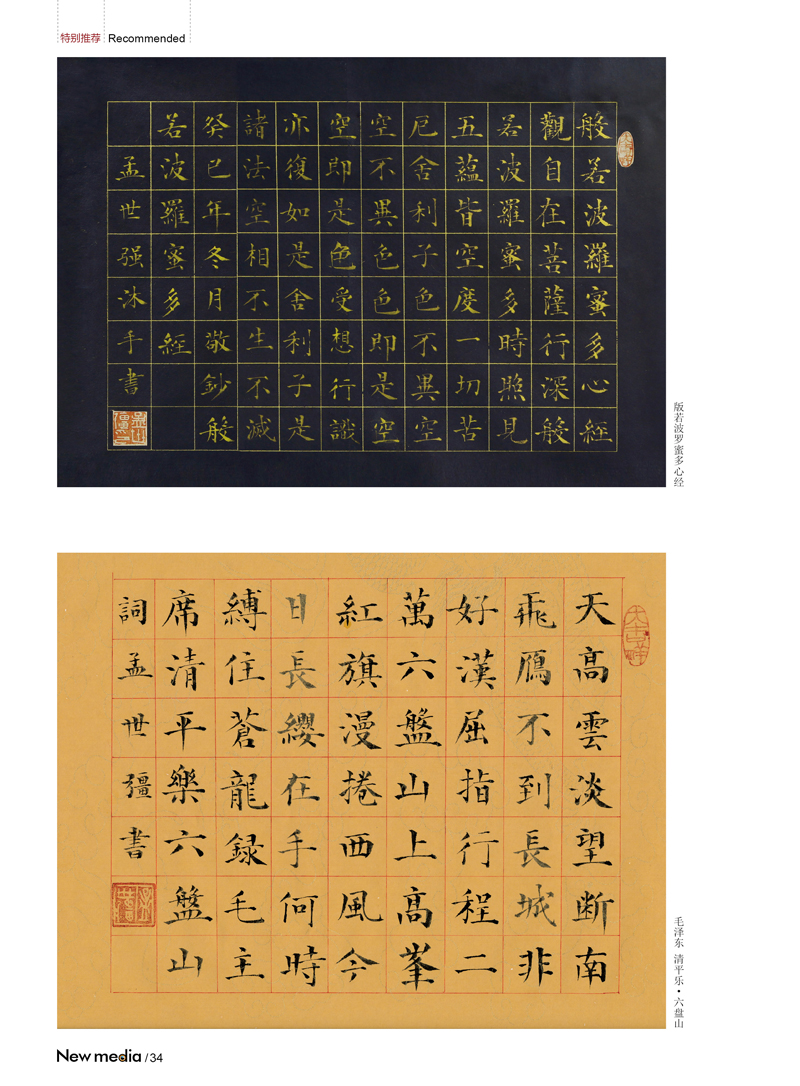 特别推荐 Recommended
般若波羅蜜多心經
觀自在菩薩行深般
若波羅蜜多時照見
五蘊皆空度一切苦
厄舍利子色不異空
空不異色色即是空
空即是色受想行識
亦復如是舍利子是
諸法空相不生不滅
癸巳年冬月敬鈔般
若波羅蜜多經
孟世强沐手書
版若波罗蜜多心经
天高雲淡望断南
飛雁不到長城非
好漢屈指行程二
萬六盤山上高峯
紅旗漫捲西風今
日長纓在手何時
縛住蒼龍録毛主
席清平樂六盤山
詞孟世彊書
毛泽东 清平乐·六盘山
New media / 34